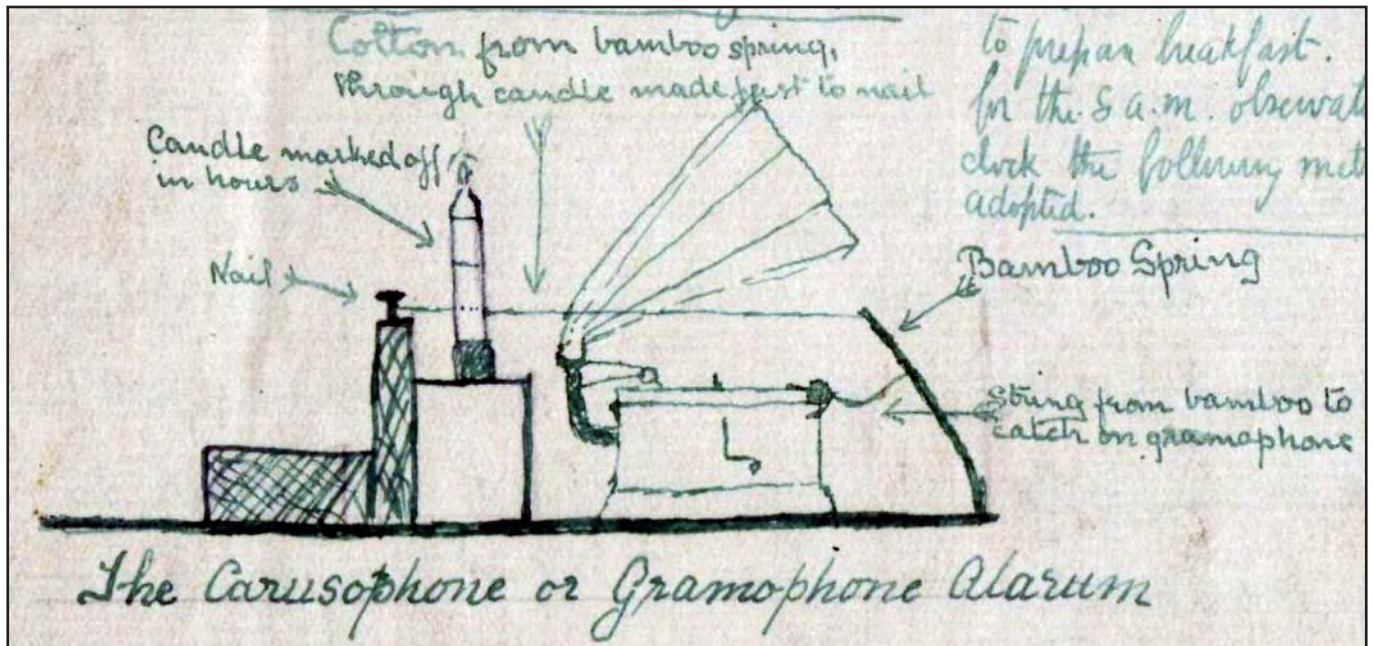 Cotton from bamboo spring,
through candle made fast to nail
to prepare breakfast.
for the 5 a.m. observat
clock the following met
adopted.
Candle marked off
in hours
Nail
Bamboo Spring
String from bamboo to
catch on gramophone
The Carusophone or Gramophone Alarum